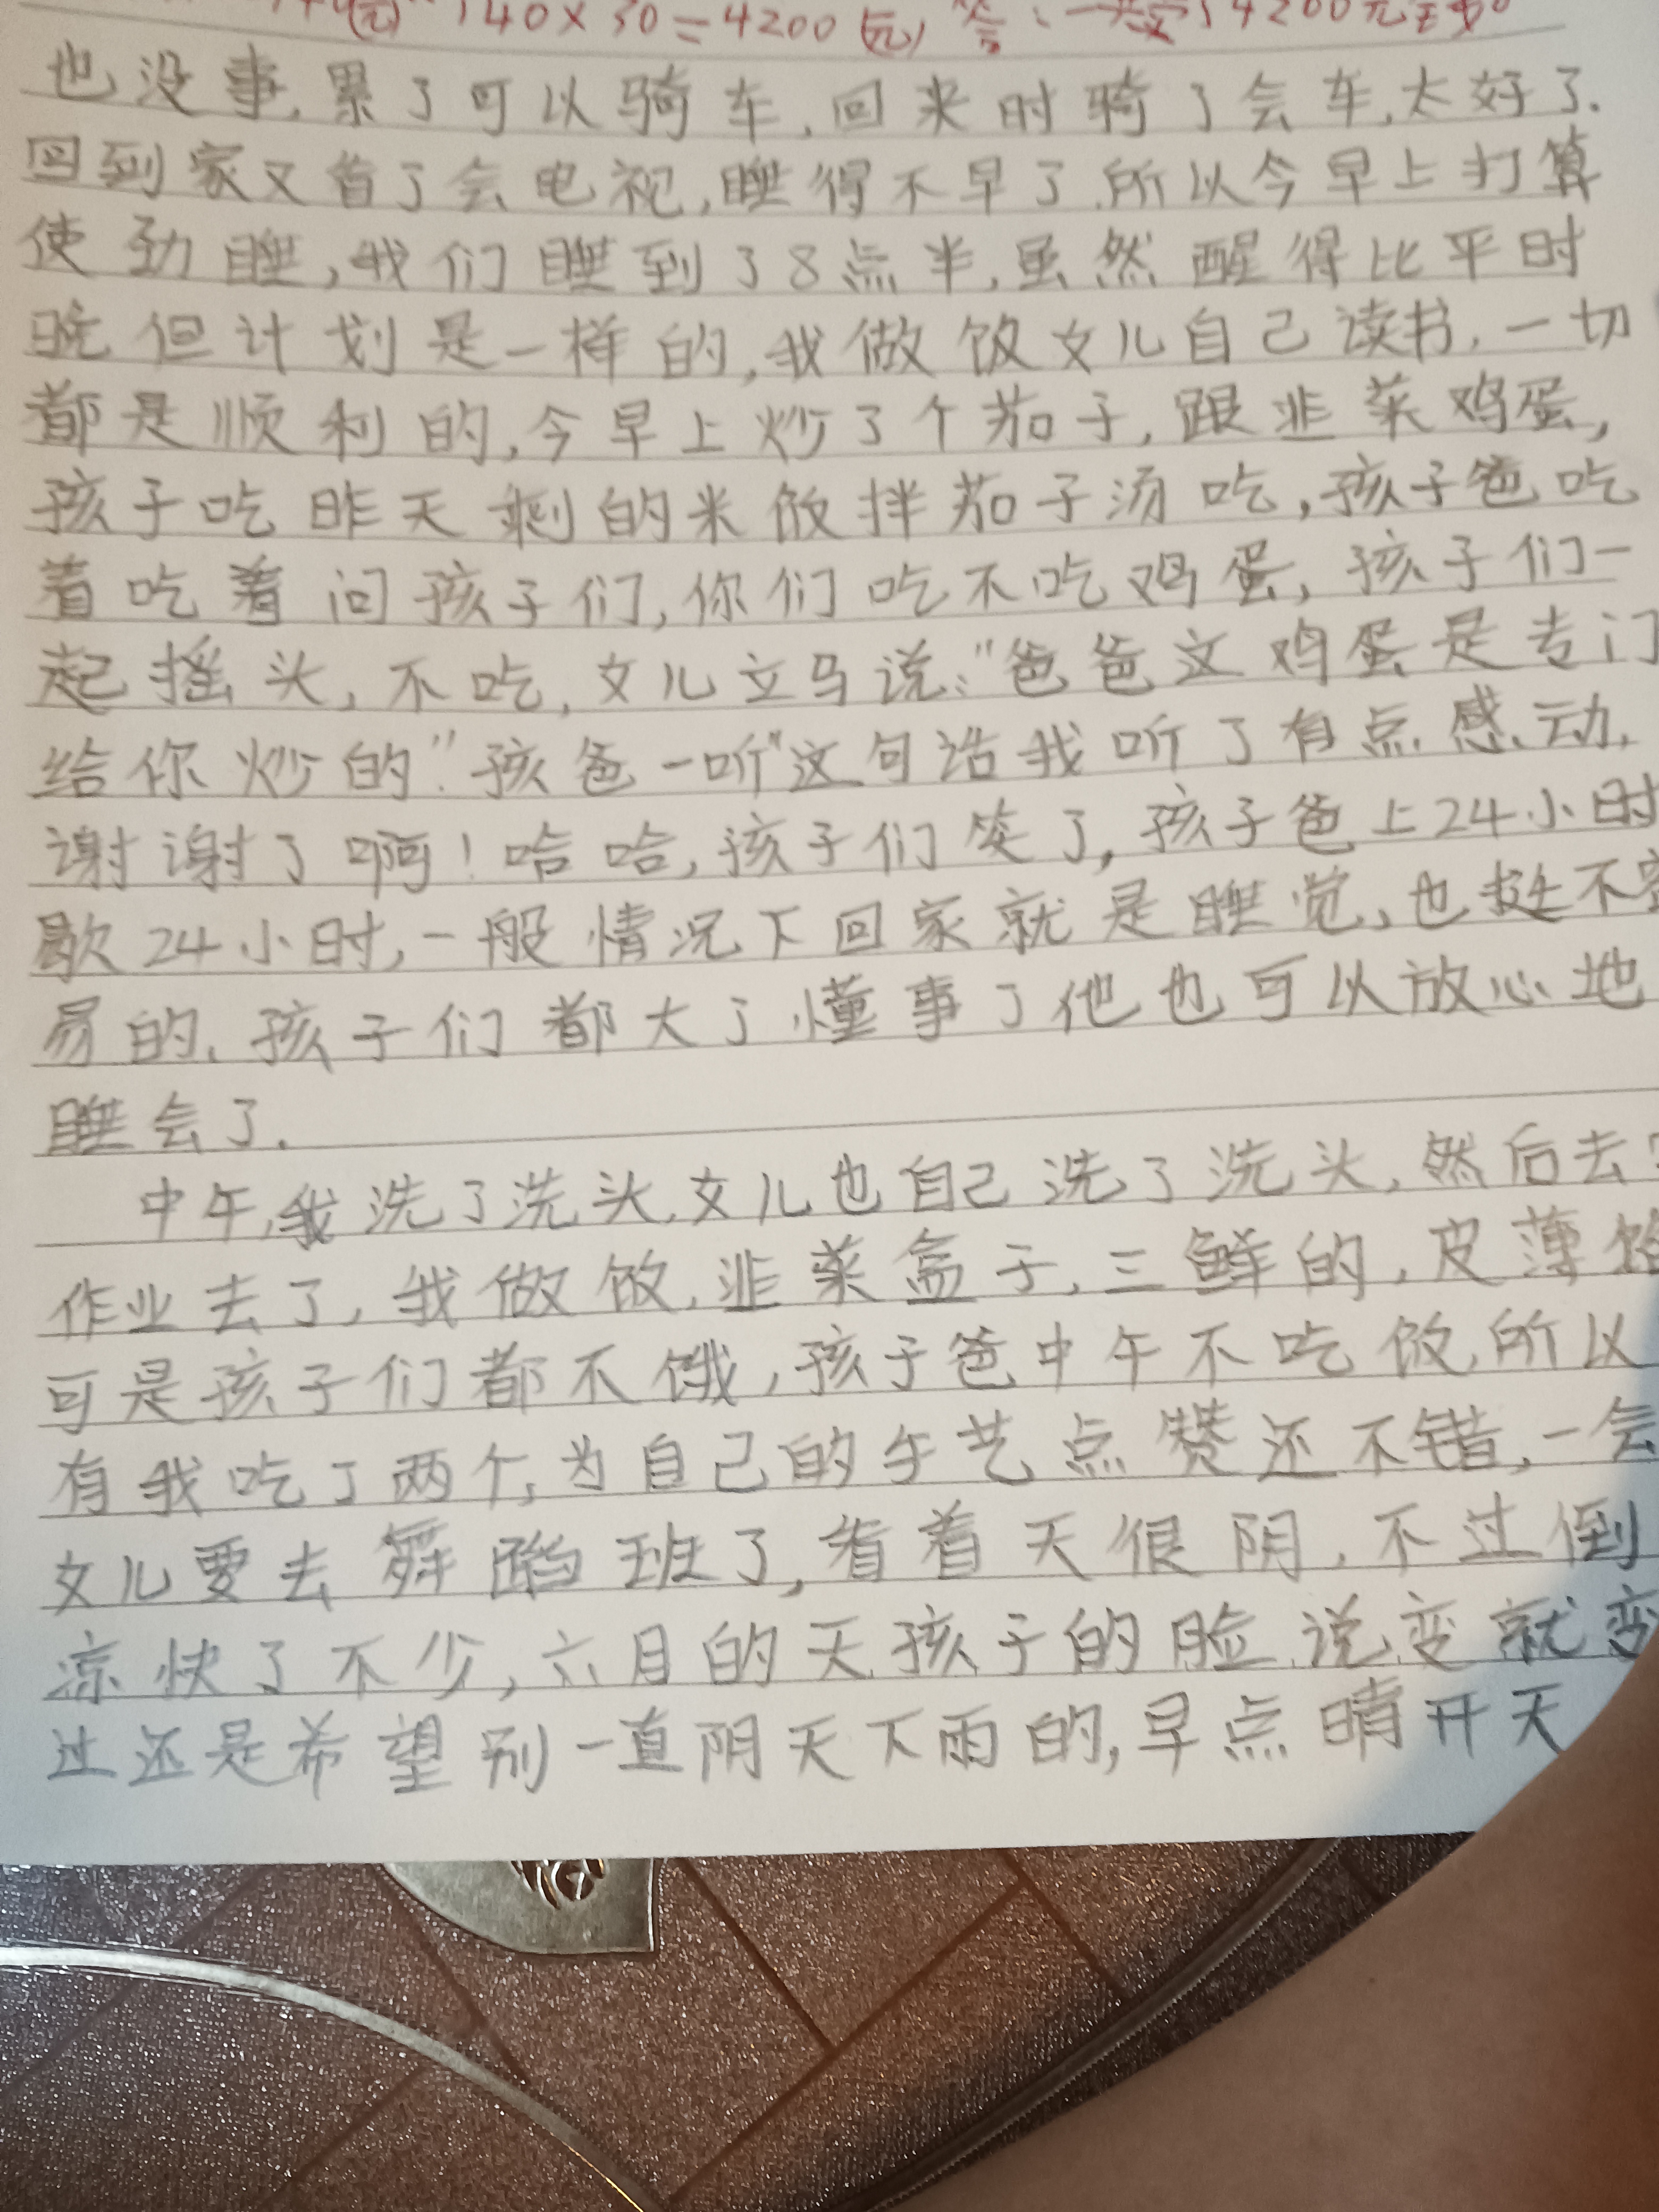 (元) 140×30=4200(元) 答:一共 4200元
也没事,累了可以骑车,回来时骑了会车,太好了.
回到家又看了会电视,睡得不早了.所以今早上打算
使劲睡,我们睡到了8点半,虽然醒得比平时
晚但计划是一样的,我做饭女儿自己读书,一切
都是顺利的,今早上炒了个茄子,跟韭菜鸡蛋,
孩子吃昨天剩的米饭拌茄子汤吃,孩子爸吃
着吃着问孩子们,你们吃不吃鸡蛋,孩子们一
起摇头,不吃,女儿立马说:"爸爸这鸡蛋是专门
给你炒的".孩爸一听"这句话我听了有点感动.
谢谢了啊!哈哈,孩子们笑了,孩子爸上24小时
歇24小时,一般情况下回家就是睡觉,也挺不容
易的.孩子们都大了懂事了他也可以放心地
睡会了.
中午,我洗了洗头,女儿也自己洗了洗头,然后去
作业去了,我做饭,韭菜盒子,三鲜的,皮薄馅
可是孩子们都不饿,孩子爸中午不吃饭,所以
有我吃了两个,为自己的手艺点赞还不错,一会
女儿要去舞蹈班了,看着天很阴,不过倒
凉快了不少,六月的天孩子的脸说变就变
过还是希望别一直阴天下雨的,早点晴开天